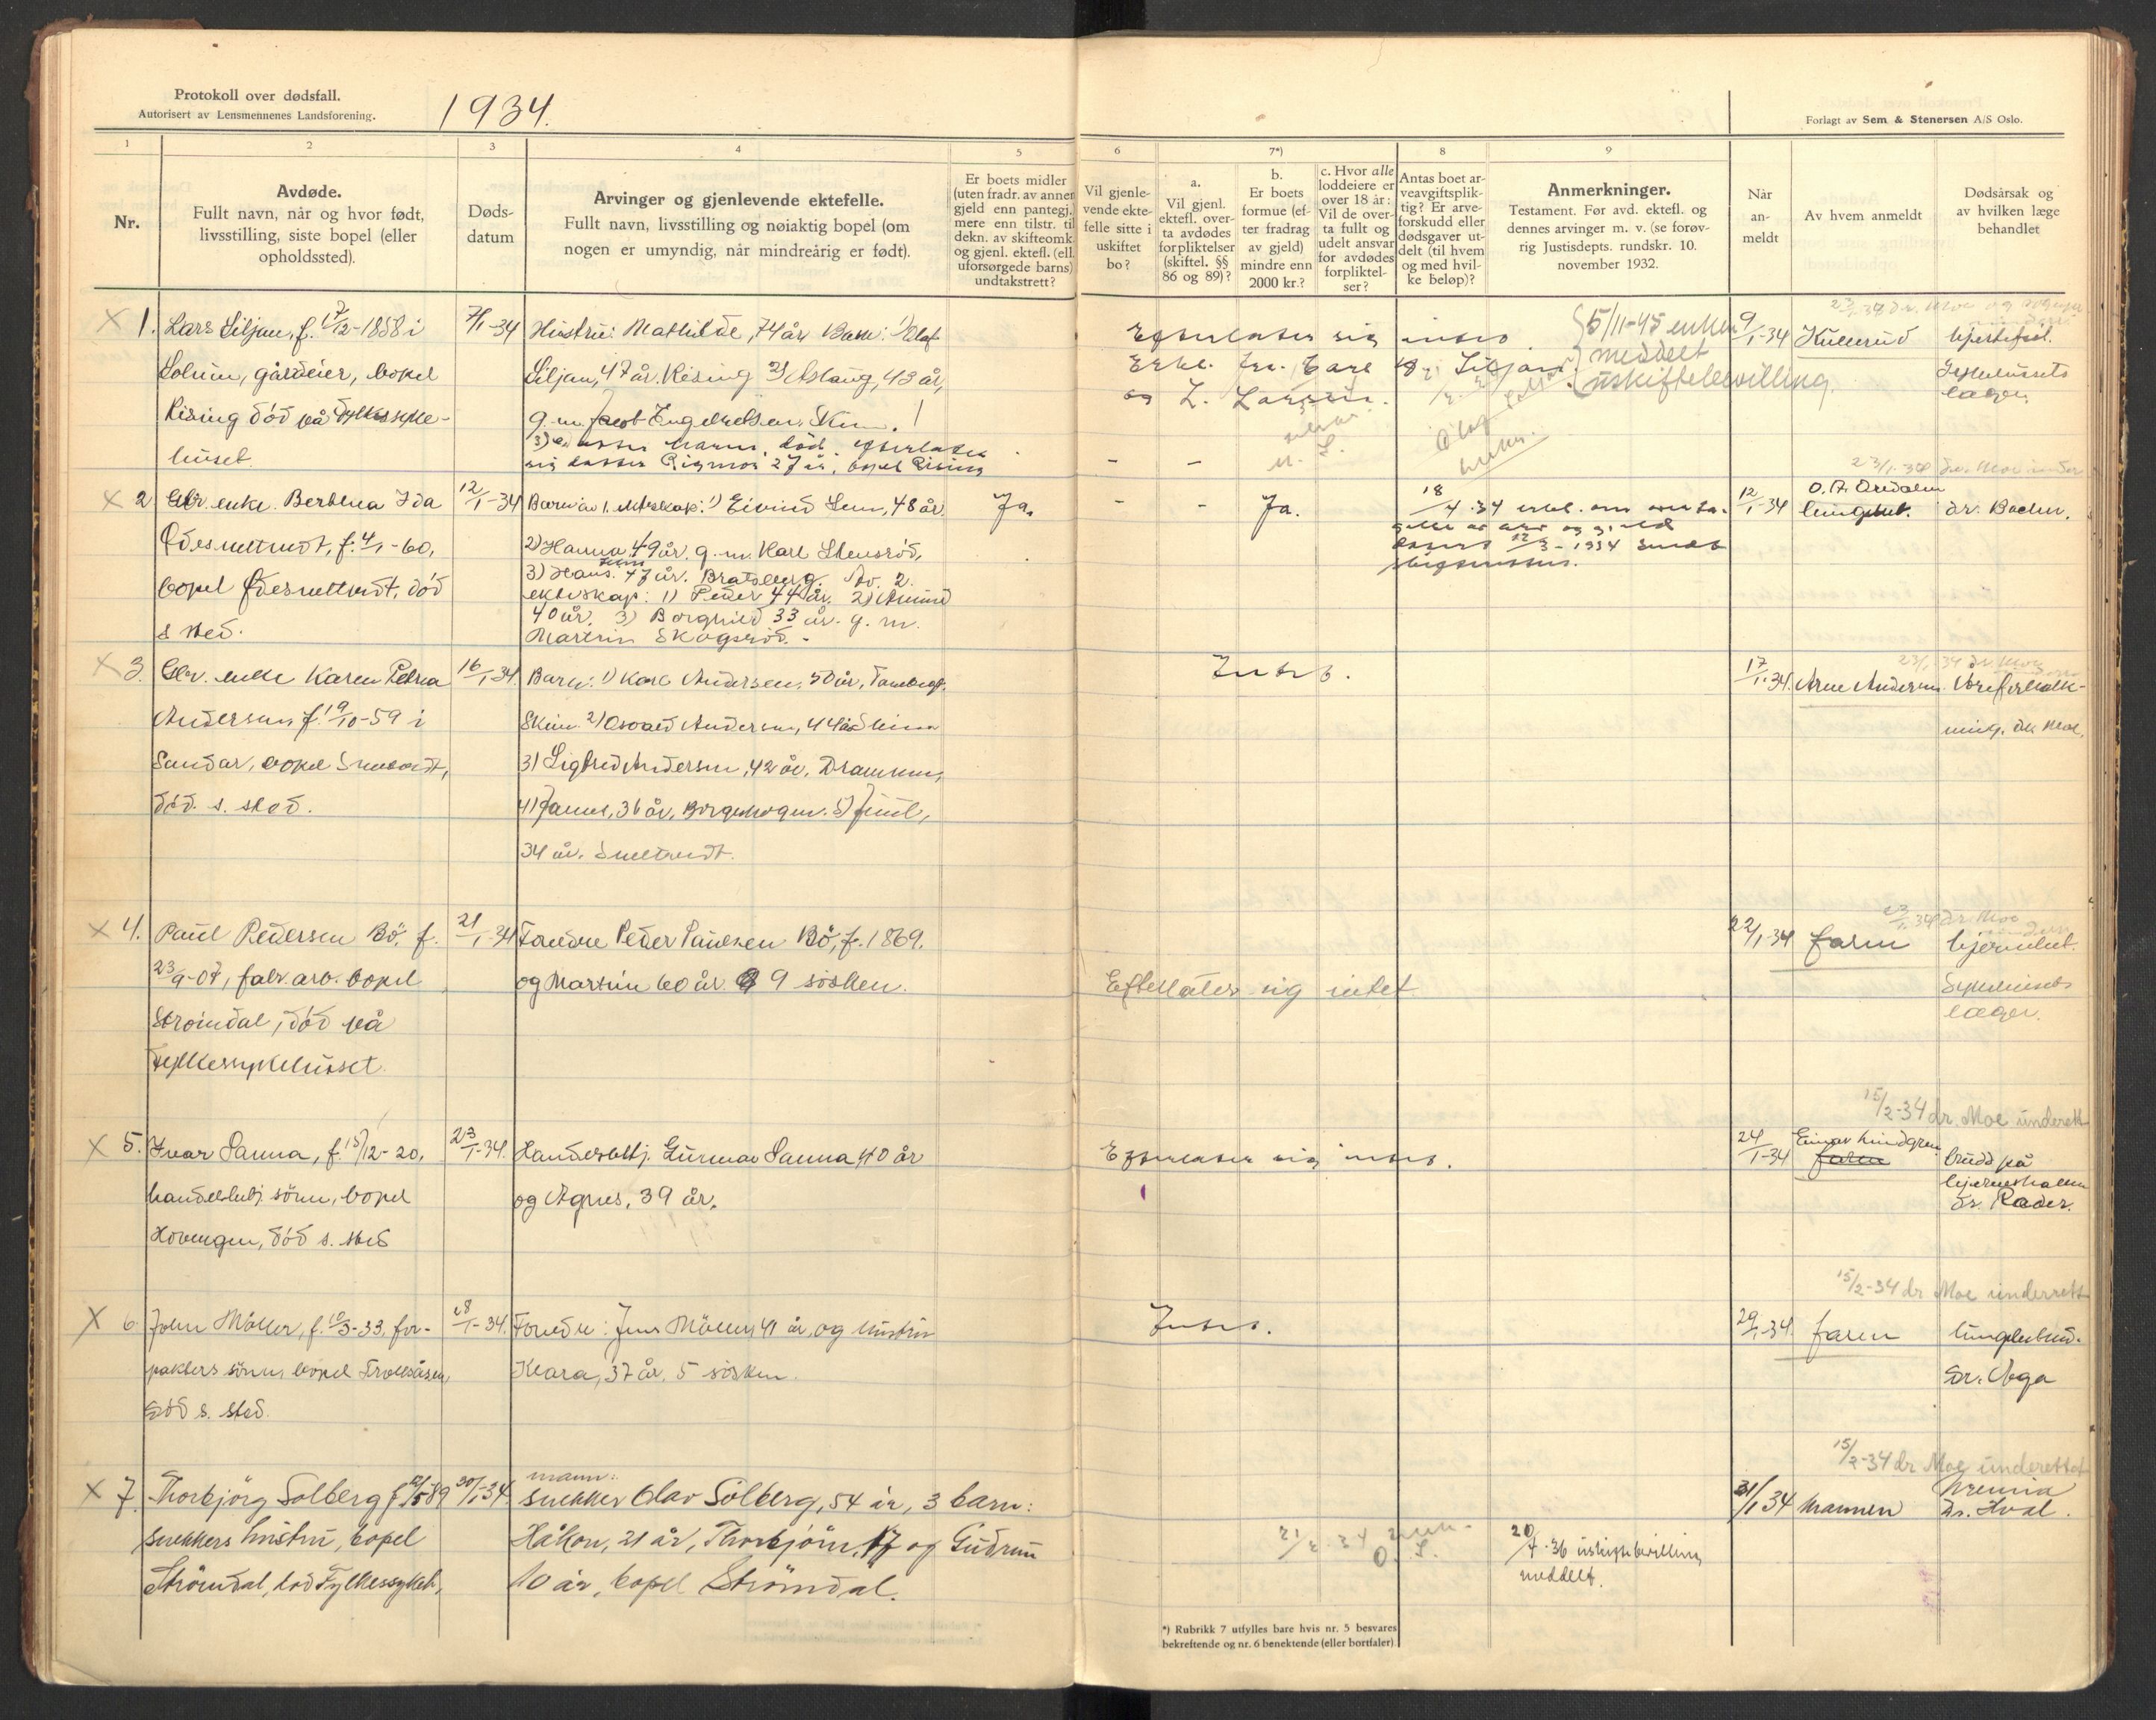 Protokoll over dødsfall.
Autorisert av Lensmennenes Landsforening.
1934.
Forlagt av Sem & Stenersen A/S Oslo.
1
2
3
4
5
6
7*)
8
9
Nr.
Avdøde.
Fullt navn, når og hvor født,
livsstilling, siste bopel (eller
opholdssted).
Døds-
datum
Arvinger og gjenlevende ektefelle.
Fullt navn, livsstilling og nøiaktig bopel (om
nogen er umyndig, når mindreårig er født).
Er boets midler
(uten fradr. av annen
gjeld enn pantegj.)
mere enn tilstr. til
dekn. av skifteomk.
og gjenl. ektefl. (ell.
uforsørgede barns)
undtakstrett?
Vil gjenle-
vende ekte-
felle sitte i
uskiftet
bo?
a.
Vil gjenl.
ektefl. over-
ta avdødes
forpliktelser
(skiftel. §§
86 og 89)?
b.
Er boets
formue (ef-
ter fradrag
av gjeld)
mindre enn
2000 kr.?
c. Hvor alle
loddeiere er
over 18 år:
Vil de over-
ta fullt og
udelt ansvar
for avdødes
forpliktel-
ser?
Antas boet ar-
veavgiftsplik-
tig? Er arve-
forskudd eller
dødsgaver ut-
delt (til hvem
og med hvil-
ke beløp)?
Anmerkninger.
Testament. Før avd. ektefl. og
dennes arvinger m. v. (se forøv-
rig Justisdepts. rundskr. 10.
november 1932.
Når
an-
meldt
Av hvem anmeldt
Dødsårsak og
av hvilken læge
behandlet
X 1. Lars Liljan, f. 17/12-1858 i
Solum, gårdeier, bopel
Rising død på Fylkessyke-
huset.
7/1-34
Hustru: Mathilde, 74 år Barn: 1) Olaf
Liljan, 47 år. Rising 2) Aslaug, 43 år,
g. m. Jacob Engebretsen, Skien.
3) død. efterlater
sig datter Rigmor 27 år, bopel Rising
Efterlater sig intet.
Liljan
og L. Larsen.
5/11-45 enken
meddelt
uskiftebevilling.
9/1-34
Kullerud
hjertefeil.
Sykehusets
læge.
23/1-34 dr. Moe
X 2 Gbr. enke. Berthea Ida
f. 4/1-60,
bopel død
s sted.
12/1-34
Barn av 1. ekteskap: 1) Eivind 48 år.
2) Hanna, 49 år. g. m. Karl Stensrød,
3) Hans. 47 år. Bratsberg. Av. 2.
ekteskap: 1) Peder 44 år. 2) Amund
40 år. 3) Borghild 33 år. g. m.
Martin Skogsrød. -
Ja.
-
-
Ja.
18/4.34 erkl. om
12/3-1934
12/1-34
dr.
23/1-34 dr. Moe under
X 3. Gbr. enke Karen Petrea
Andersen, f. 19/10-59 i
Sandar, bopel
død. s. sted.
16/1-34.
Barn: 1) Karl Andersen, 50 år,
Skien. 2) Osvald Andersen, 44 år Skien
3) Sigfred Andersen, 42 år, Drammen,
4) James, 36 år, Borgeskogen. 5) Juul,
34 år.
Intet.
17/1-34.
Arne Andersen.
Åreforkalk-
ning. dr. Moe.
23/1-34 dr. Moe
X 4. Paul Pedersen Bö, f.
23/9-07, fabr. arb. bopel
Strömdal, död på
Fylkessykehuset.
21/1-34
Foreldre Peder Paulsen Bö, f. 1869.
og Martine 60 år 9 sösken.
Efterlater sig intet
22/1-34
faren
Sykehusets
læge.
23/1-34 dr. Moe
X 5. Ivar Sanna, f. 15/12-20,
handelsbetj. sönn, bopel
död s. sted
23/1-34.
Handelsbetj. Gunnar Sanna 40 år
og Agnes, 39 år.
Efterlater sig intet.
24/1-34
Einar Lindgren
faren
brudd på
hjerneskallen
dr. Rader.
15/2-34 dr. Moe underrett
X 6 John Möller, f. 10/3-33, for-
pakters sönn, bopel Trollsåsen,
död s. sted.
28/1-34.
Foreldre: Jens Möller, 41 år, og hustru
Klara, 37 år. 5 sösken.
Intet.
29/1-34.
faren
lungebet.
Dr. Aaga
15/2-34 dr Moe underrett
X 7. Thorbjörg Solberg f. /5 89
snekkers hustru, bopel
Strömdal, död Fylkessykeh.,
30/1-34
mann:
snekker Olav Solberg, 54 år, 3 barn:
Håkon, 21 år, Thorbjörn, 17 og Gudrun
10 år, bopel Strömdal.
O. S.
20/7-36 uskiftebevilling
meddelt.
31/1 34
Mannen
Uremia
Dr. Hval.
15/2-34 dr Moe underrettet
*) Rubrikk 7 utfylles bare hvis nr. 5 besvares
bekreftende og nr. 6 benektende (eller bortfaler)